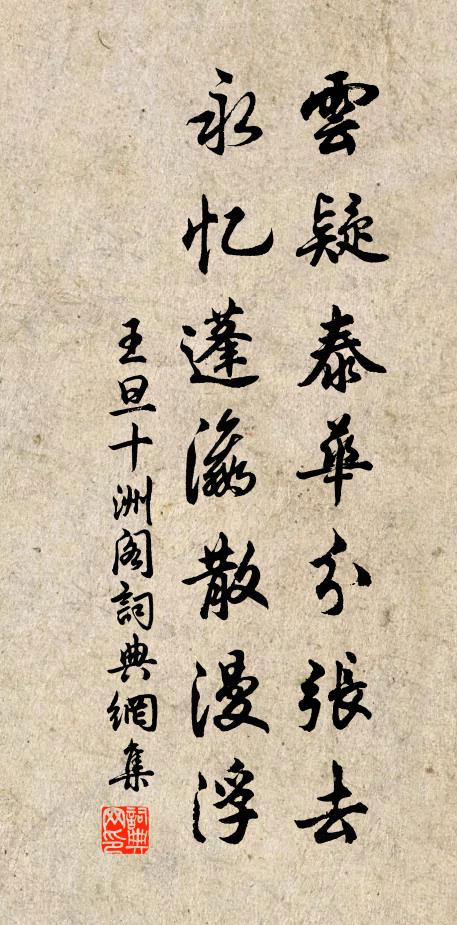 雲疑泰華分張去
永忆蓬瀛散漫浮
王旦十洲阁詞典網集
詞典網印